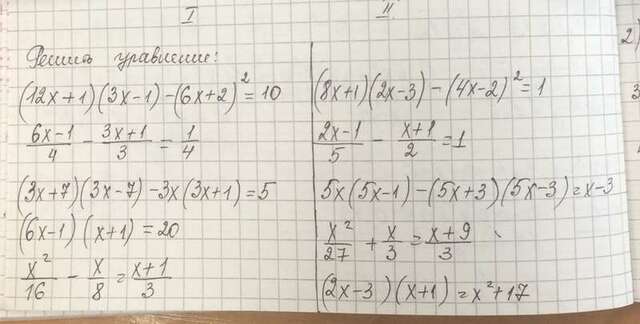 I
Решить уравнение:
(12x+1)(3x-1)-(6x+2)²=10
(6x-1)/4 - (3x+1)/3 = 1/4
(3x+7)(3x-7)-3x(3x+1)=5
(6x-1)(x+1)=20
x²/16 - x/8 = (x+1)/3
II
(8x+1)(2x-3)-(4x-2)²=1
(2x-1)/5 - (x+1)/2 = 1
5x(5x-1)-(5x+3)(5x-3)=x-3
x²/27 + x/3 = (x+9)/3
(2x-3)(x+1)=x²+17
2)